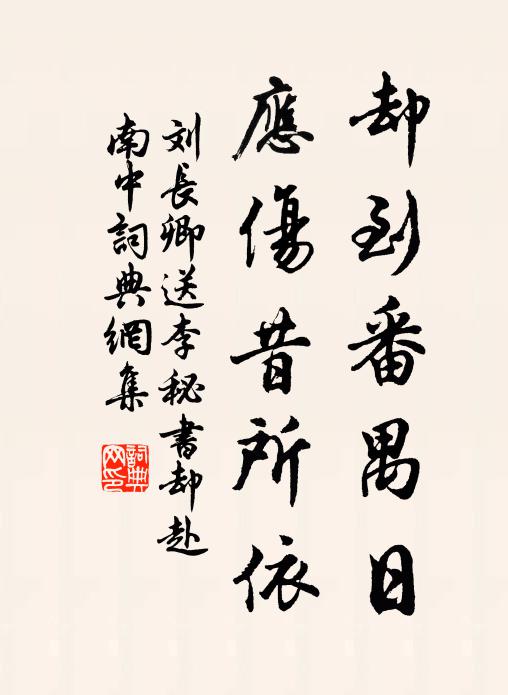 却到番禺日
應傷昔所依
刘長卿送李秘書却赴
南中詞典網集
詞典
网印